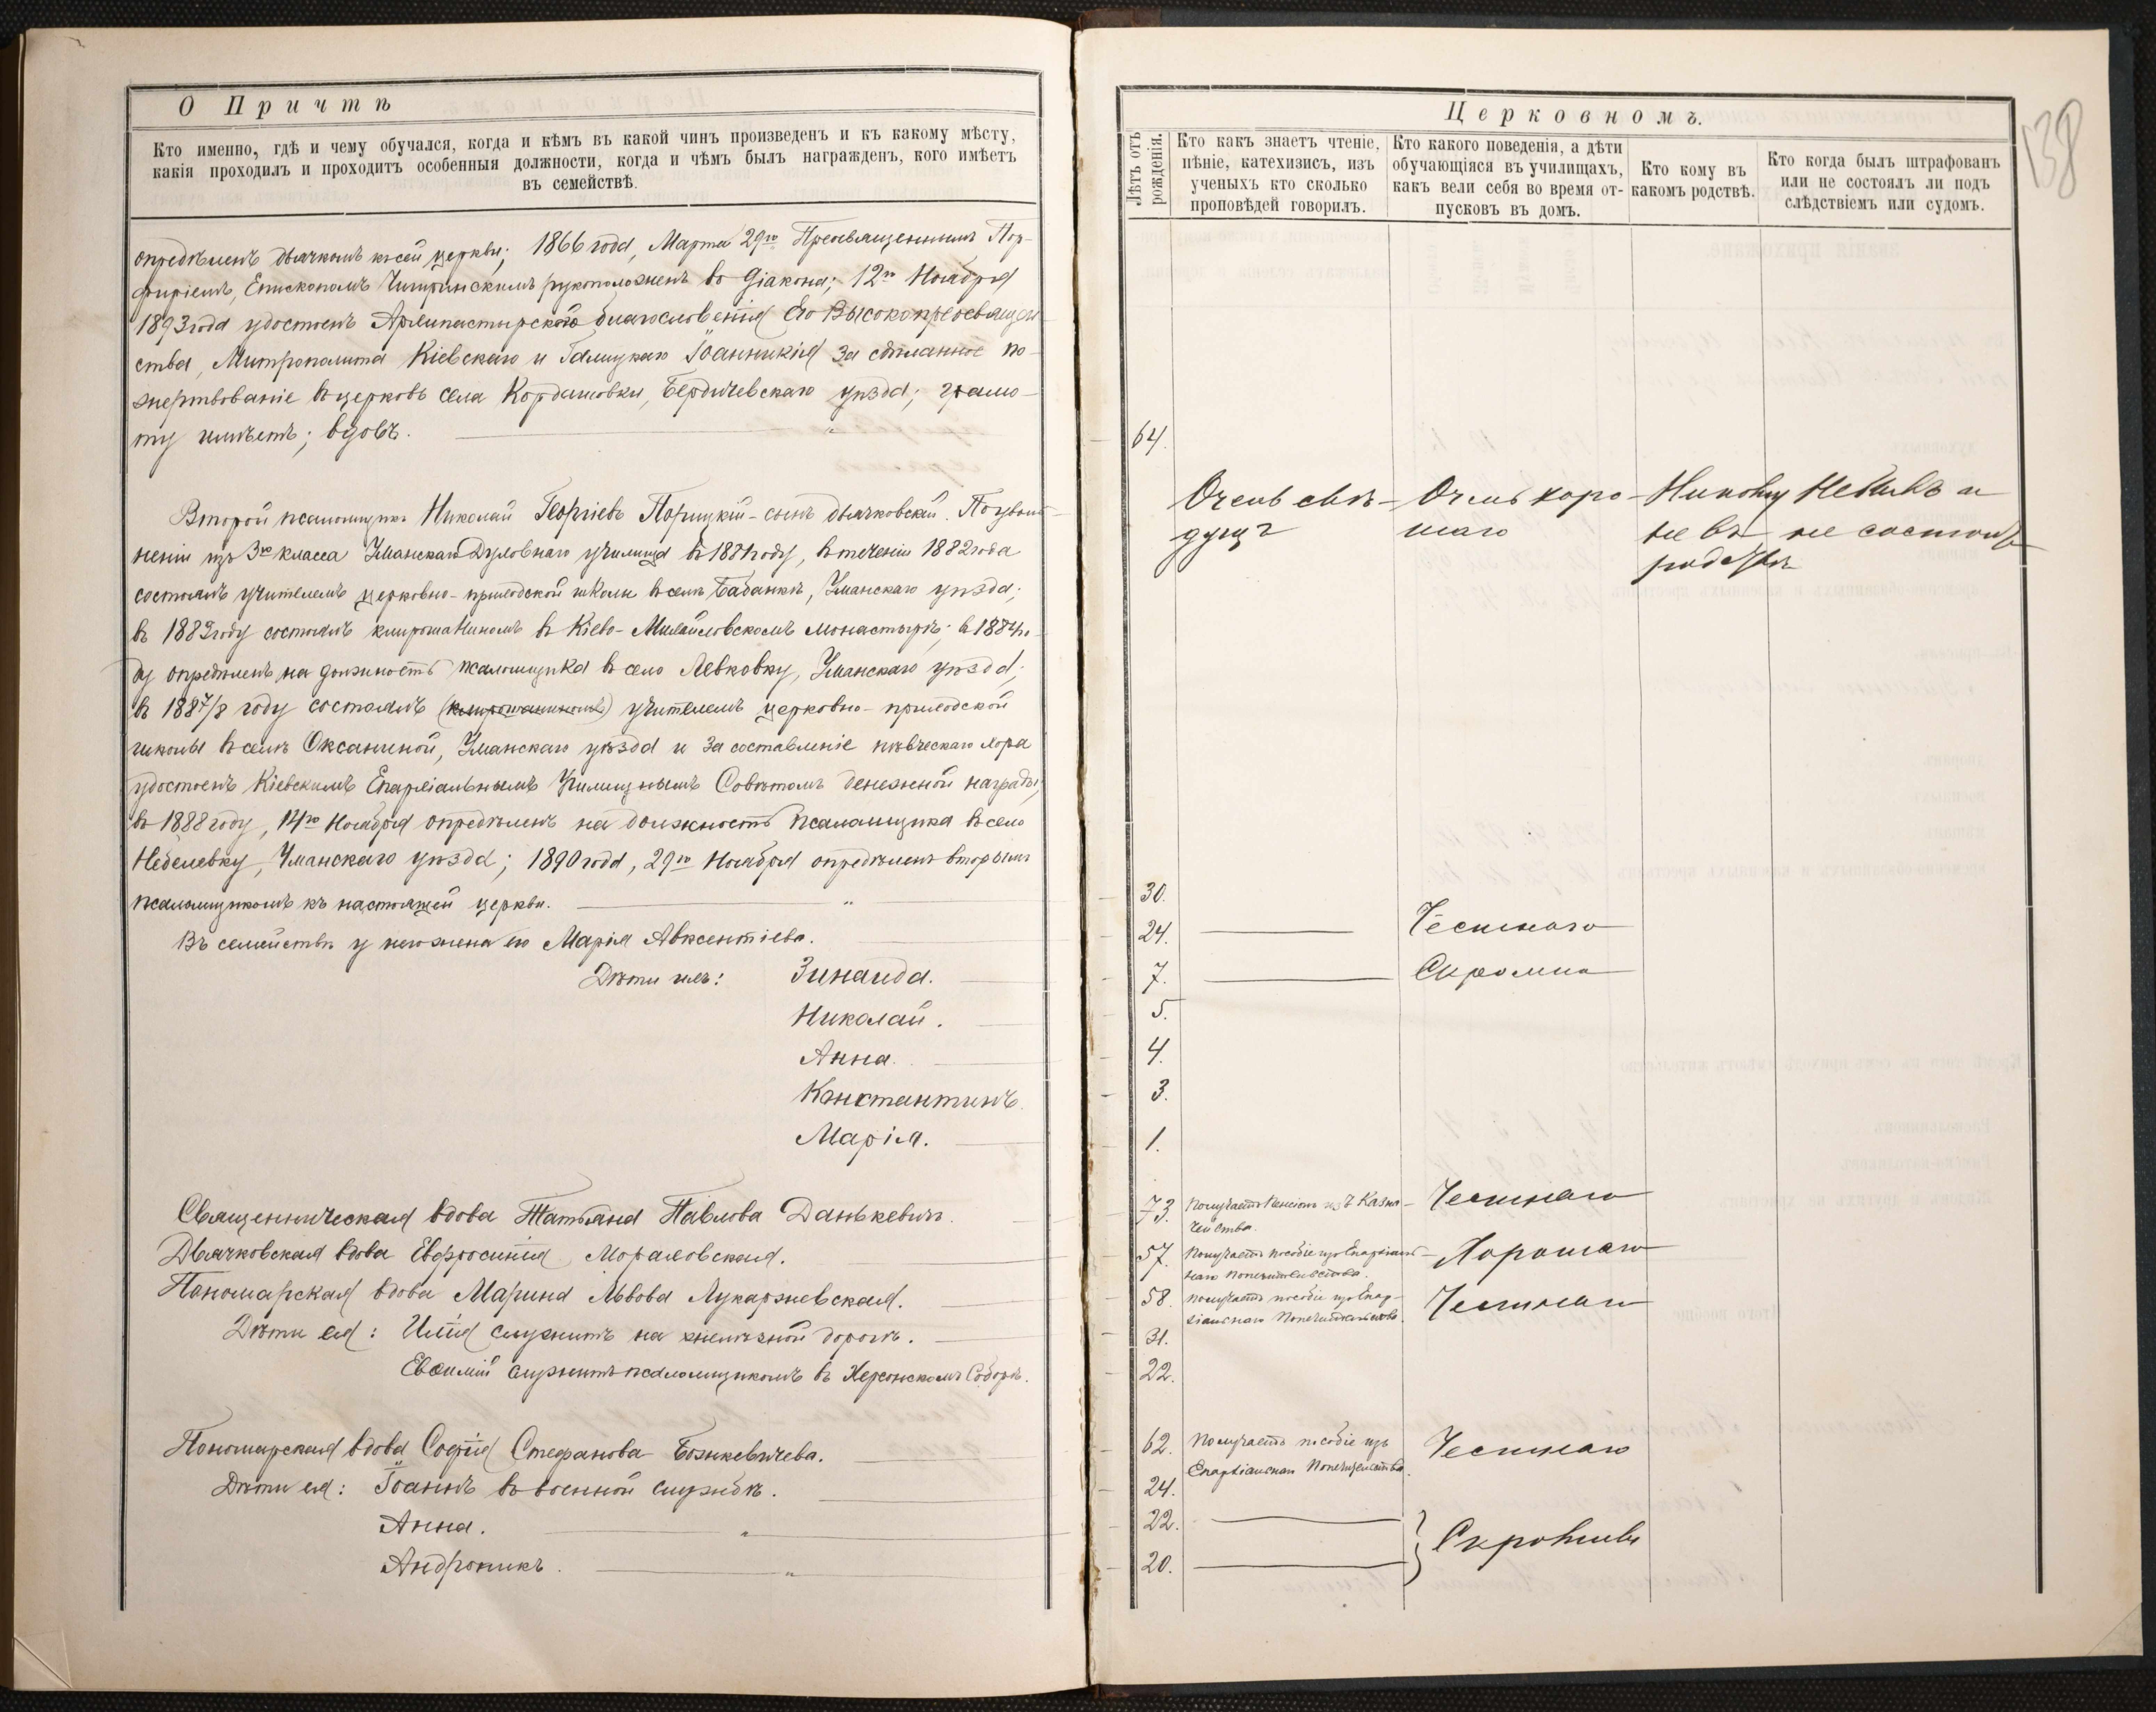 О Причтѣ
Кто именно, гдѣ и чему обучался, когда и кѣмъ въ какой чинъ произведенъ и къ какому мѣсту,
какія проходилъ и проходитъ особенныя должности, когда и чѣмъ былъ награжденъ, кого имѣетъ
въ семействѣ.
опредѣленъ дьячкомъ къ сей церкви; 1866 года, Марта 29го Преосвященнымъ Пор-
фиріемъ, Епископомъ Чигиринскимъ рукоположенъ во діакона; 12го Ноября
1893 года удостоенъ Архипастырскаго благословенія Его Высокопреосвящен
ства, Митрополита Кіевскаго и Галицкаго Іоанникія за сдѣланное по-
жертвованіе въ церковь села Кордышовки, Бердичевскаго уѣзда; грамо-
ту имѣетъ; вдовъ.
Второй псаломщикъ Николай Георгіевъ Порицкій - сынъ дьячковскій. По уволь-
неніи изъ 3го класса Уманскаго Духовнаго училища въ 1881 году, въ теченіи 1882 года
состоялъ учителемъ церковно-приходской школы въ селѣ Бабанкѣ, Уманскаго уѣзда;
въ 1882 году состоялъ клирошаниномъ въ Кіево-Михайловскомъ монастырѣ; въ 1884 го-
ду опредѣленъ на должность псаломщика въ село Левковку, Уманскаго уѣзда;
въ 1887/8 году состоялъ (клирошаниномъ) учителемъ церковно-приходской
школы въ селѣ Оксаниной, Уманскаго уѣзда и за составленіе пѣвческаго хора
удостоенъ Кіевскимъ Епархіальнымъ Училищнымъ Совѣтомъ денежной награды;
въ 1888 году, 14го Ноября опредѣленъ на должность псаломщика въ село
Небелевку, Уманскаго уѣзда; 1890 года, 29го Ноября опредѣленъ вторымъ
псаломщикомъ къ настоящей церкви.
Въ семействѣ у него жена его Марія Авксентіева.
Дѣти ихъ: Зинаида.
Николай.
Анна.
Константинъ.
Марія.
Священническая вдова Татьяна Павлова Данькевичъ.
Дьячковская вдова Евфросинія Мораховская.
Пономарская вдова Марина Львова Лукаржевская.
Дѣти ея: Илія служитъ на желѣзной дорогѣ.
Евѳимій служитъ псаломщикомъ въ Херсонскомъ Соборѣ.
Пономарская вдова Софія Стефанова Божкевичева.
Дѣти ея: Іоаннъ въ военной службѣ.
Анна.
Андроникъ.
Церковномъ.
138
Лѣтъ отъ рожденія.
Кто какъ знаетъ чтеніе,
пѣніе, катехизисъ, изъ
ученыхъ кто сколько
проповѣдей говорилъ.
Кто какого поведенія, а дѣти
обучающіяся въ училищахъ,
какъ вели себя во время от-
пусковъ въ домъ.
Кто кому въ
какомъ родствѣ.
Кто когда былъ штрафованъ
или не состоялъ ли подъ
слѣдствіемъ или судомъ.
64.
Очень свѣ- Очень хоро- Никому Небылъ и
дущъ шаго не въ не состоитъ
родствѣ
30.
24. Честнаго
7. Скромна
5.
4.
3.
1.
73. Получаетъ Пенсіонъ изъ Казна- Честнаго
чейства.
57. Получаетъ пособіе изъ Епархіаль- Хорошаго
наго Попечительства.
58. Получаетъ пособіе изъ Епар- Честнаго
хіальнаго Попечительства.
31.
22.
62. Получаетъ пособіе изъ Честнаго
Епархіальнаго Попечительства.
24.
22.
Скромны
20.